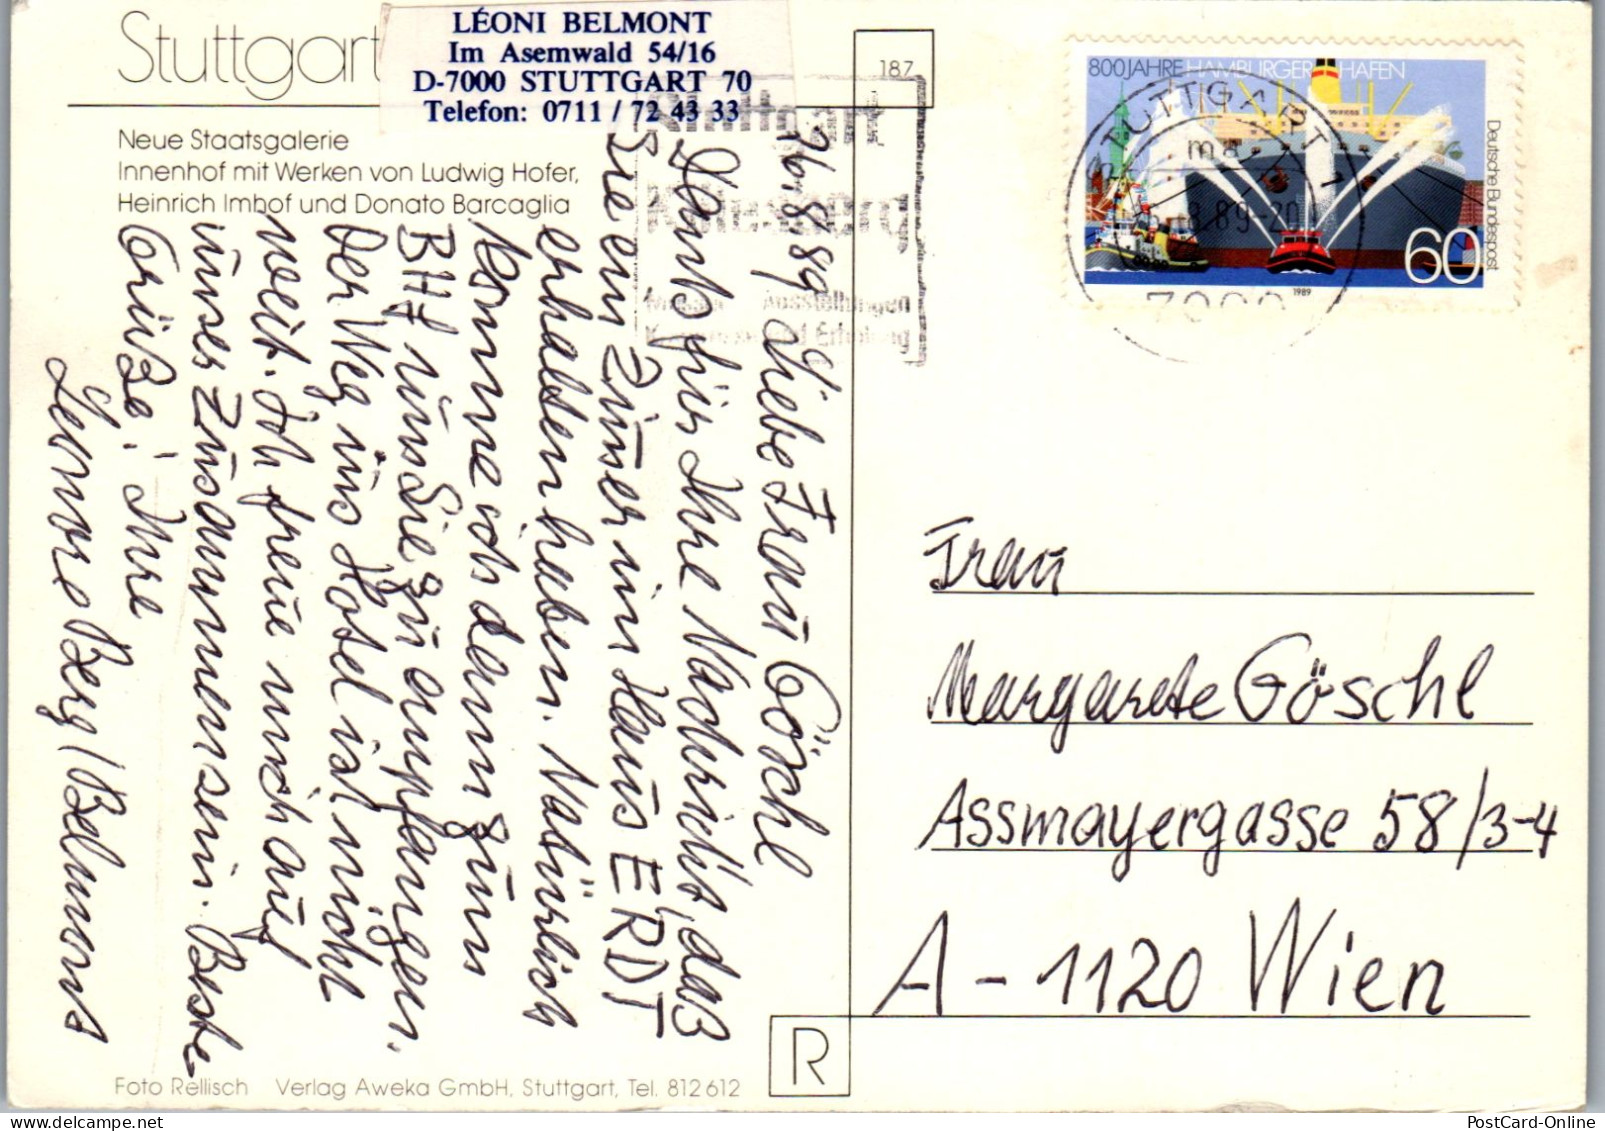 Stuttgart
LÉONI BELMONT
Im Asemwald 54/16
D-7000 STUTTGART 70
Telefon: 0711 / 72 43 33
Neue Staatsgalerie
Innenhof mit Werken von Ludwig Hofer,
Heinrich Imhof und Donato Barcaglia
187
800 JAHRE HAMBURGER HAFEN
Deutsche Bundespost
60
1989
STUTTGART 1
ma
.8.89-20
7000
Stuttgart
Killesberg
Ausstellungen
und Erholung
26.8.89 Liebe Frau Göschl
Dank für Ihre Nachricht, daß
Sie ein Zimmer im Haus ERDT
erhalten haben. Natürlich
komme ich dann zum
BHf um Sie zu empfangen.
Der Weg ins Hotel ist nicht
weit. Ich freue mich auf
unser Zusammensein. Beste
Grüße! Ihre
Leonore Berg/Belmont
Frau
Margarete Göschl
Assmayergasse 58/3-4
A-1120 Wien
R
Foto Rellisch Verlag Aweka GmbH, Stuttgart, Tel. 812 612
PostCard-Online